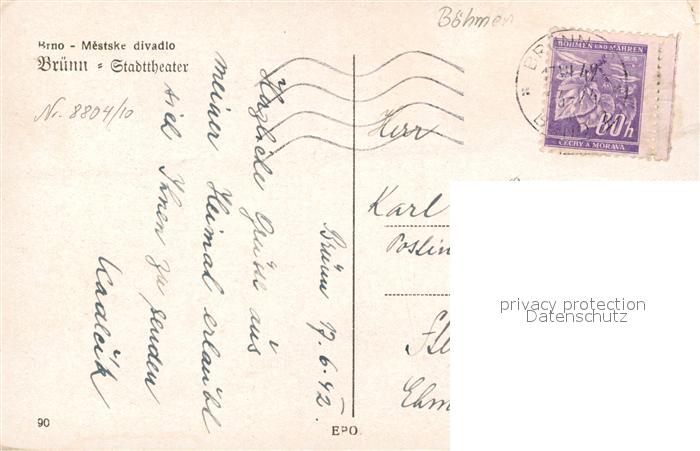 Böhmen
Brno - Městské divadlo
Brünn - Stadttheater
Nr. 8804/10
Brünn 17.6.42.
Herzliche Grüße aus
meiner Heimat erlaubt
sich Ihnen zu senden
Kadlčik
Herr
Karl
BÖHMEN UND MÄHREN
60h
ČECHY A MORAVA
BRÜNN
privacy protection
Datenschutz
90
EPO